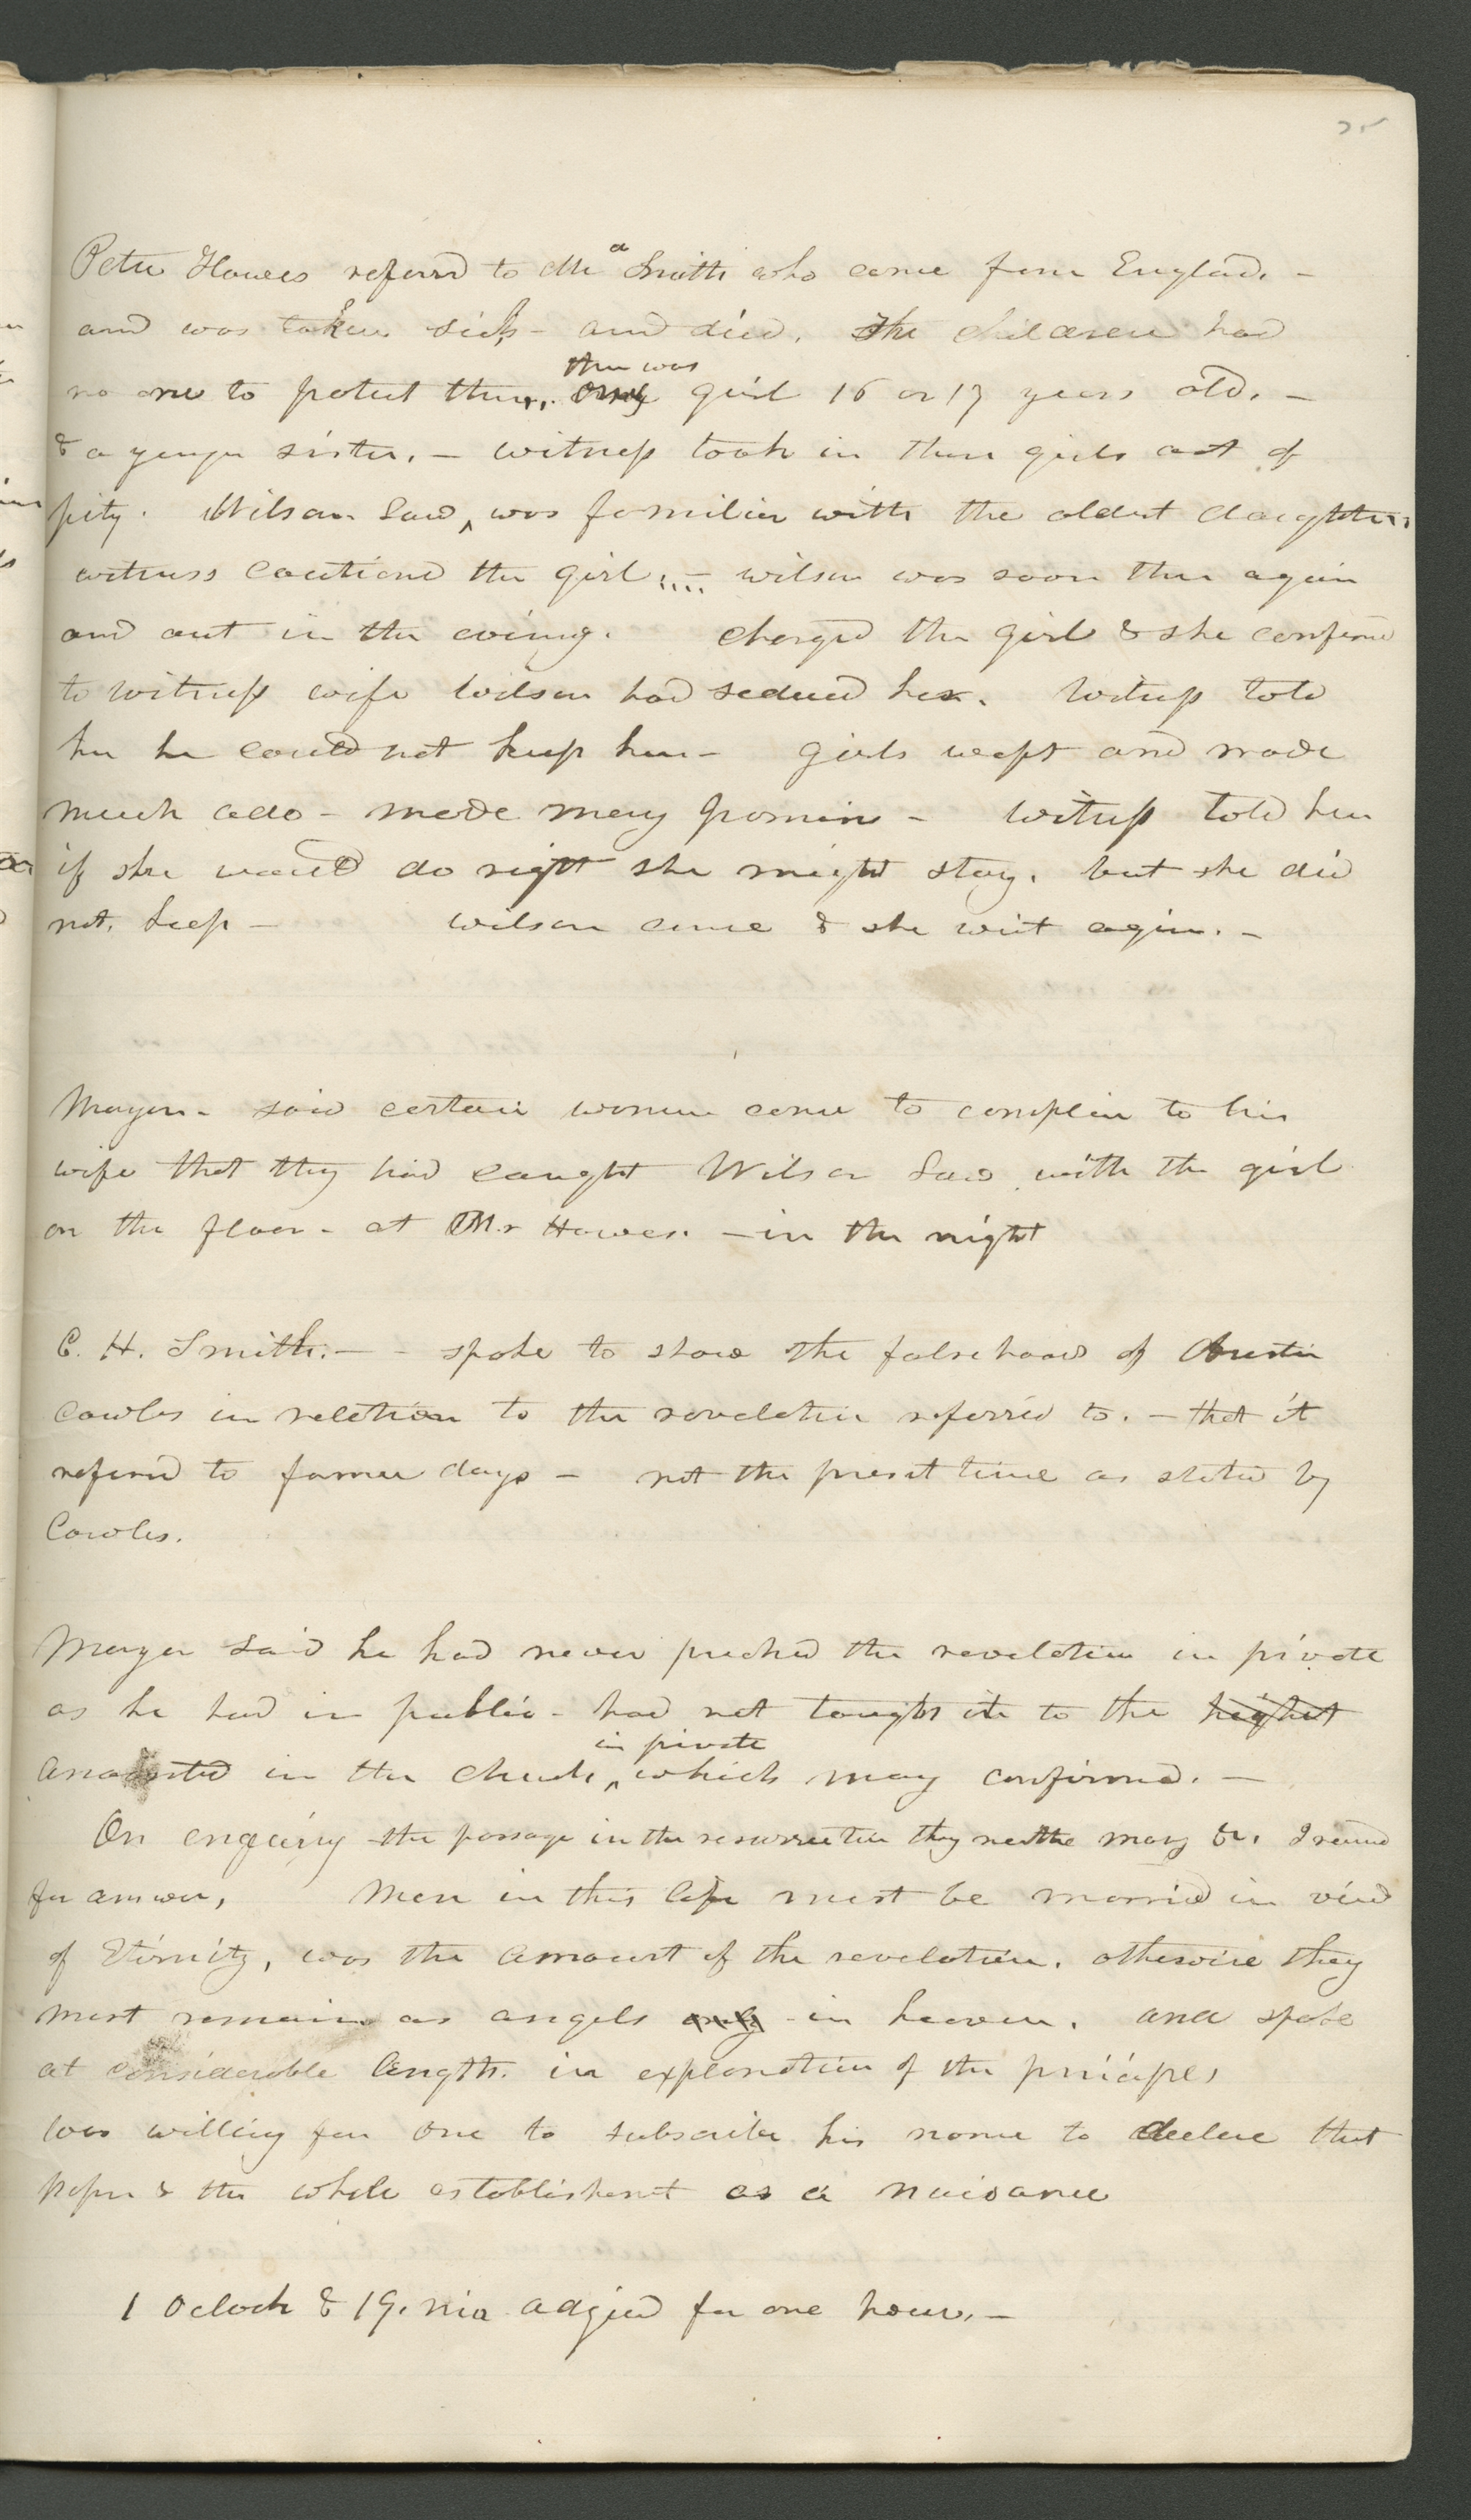 25
Peter Hawes referd to Mr a Smith who came from England. –
and was taken sick – and died. The children had
no one to protect them. there was one girl 16 or 17 years old. –
& a yongr sister. – witness took in these girls out of
pity. Wilson Law, was familier with the oldest daughter.
witness cautiond the girl. – wilson was soon there again
and out in the evening. charged the girl & she confessed
to witness wife wilson had seduced her. Witness told
her he could not keep her – girls wept and made
much ado – made many promises – Witness told her
if she would do right she might stay. but she did
not. keep – wilson came & she went again. –
Mayor – said certain women came to complain to his
wife that they had caught Wilson Law with the girl
on the floor – at Mr Hawes. – in the night
C. H. Smith. – – spoke to shew the falsehood of Austin
Cowles in relation to the revelation referred to. – that it
referd to former days – not the presnt time as stated by
Cowles.
Mayor said he had never preched the revelation in private
as he had in public – had not taught it to the highest
anointed in the church in private which many confirmed. –
On enquiry the passage in the resurrection they neither marry &c. I received
for answer, Men in this life must be married in view
of Eternity, was the amount of the revelation. otherwise they
must remain as angels only in heaven. and spoke
at considerable length. in explanation of the principles
was willing for one to subscribe his name to declare that
paper & the whole establishment as a nuisance
1 Oclock & 19. min adjrd for one hour. –